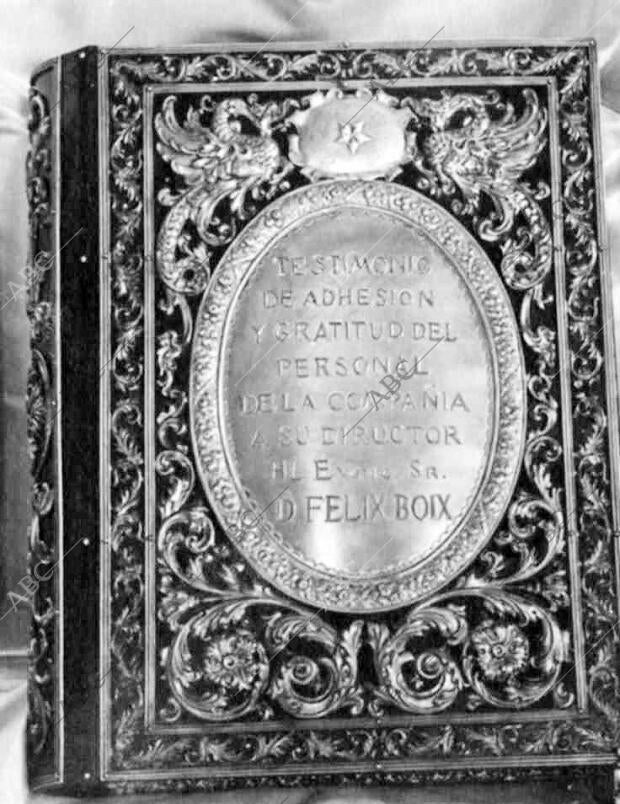 TESTIMONIO
DE ADHESION
Y GRATITUD DEL
PERSONAL
DE LA COMPAÑIA
A SU DIRECTOR
EL EXMO. SR.
D. FELIX BOIX
ABC
ABC
ABC